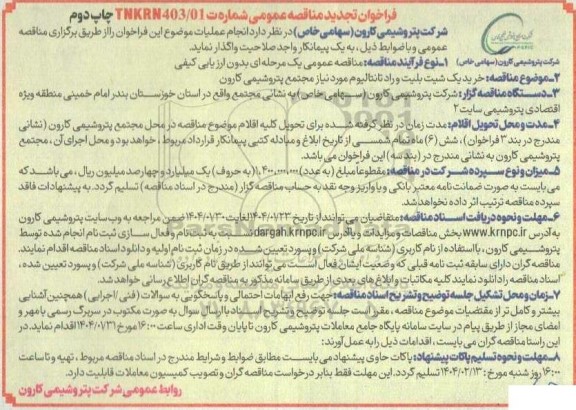 فراخوان تجدید مناقصه عمومی شماره ت TNKRN403/01 چاپ دوم
شرکت پتروشیمی کارون (سهامی خاص) در نظر دارد انجام عملیات موضوع این فراخوان را از طریق برگزاری مناقصه
عمومی و با ضوابط ذیل، به یک پیمانکار واجد صلاحیت واگذار نماید.
شرکت پتروشیمی کارون (سهامی خاص)
۱-نوع فرآیند مناقصه: مناقصه عمومی یک مرحله ای بدون ارزیابی کیفی
۲-موضوع مناقصه: خرید یک شیت بلیت و راد تانتالیوم مورد نیاز مجتمع پتروشیمی کارون
۳-دستگاه مناقصه گزار: شرکت پتروشیمی کارون (سهامی خاص) به نشانی مجتمع واقع در استان خوزستان بندر امام خمینی منطقه ویژه
اقتصادی پتروشیمی سایت ۲
۴-مدت و محل تحویل اقلام: مدت زمان در نظر گرفته شده برای تحویل کلیه اقلام موضوع مناقصه در محل مجتمع پتروشیمی کارون (نشانی
مندرج در بند ۳ فراخوان)، شش (۶) ماه تمام شمسی از تاریخ ابلاغ و مبادله کتبی پیمانکار قرارداد مربوط، خواهد بود و محل اجرای آن، مجتمع
پتروشیمی کارون به نشانی مندرج در (بند سه) این فراخوان می باشد.
۵-میزان و نوع سپرده شرکت در مناقصه: مقطوعا مبلغ (به عدد) ۱,۴۰۰,۰۰۰,۰۰۰ (به حروف) یک میلیارد و چهارصد میلیون ریال، می باشد که
می بایست به صورت ضمانت نامه معتبر بانکی و یا واریز وجه نقد به حساب مناقصه گزار (مندرج در اسناد مناقصه) تسلیم گردد. به پیشنهادات فاقد
سپرده مناقصه ترتیب اثر داده نخواهد شد.
۶-مهلت و نحوه دریافت اسناد مناقصه: متقاضیان می توانند از تاریخ ۱۴۰۴/۰۱/۲۳ لغایت ۱۴۰۴/۰۱/۳۰ ضمن مراجعه به وب سایت پتروشیمی کارون
به آدرس www.krnpc.ir بخش مناقصات و مزایدات و یا آدرس dargah.krnpc.ir نسبت به ثبت نام و فعال سازی ثبت نام انجام شده توسط
پتروشیمی کارون، با استفاده از نام کاربری (شناسه ملی شرکت) و پسورد تعیین شده در زمان ثبت نام اولیه و دانلود اسناد مناقصه اقدام نمایند.
مناقصه گران دارای سابقه ثبت نامه قبلی که وضعیت ایشان فعال است می توانند از طریق نام کاربری (شناسه ملی شرکت) و پسورد تعیین شده،
اسناد مناقصه را دانلود نمایند کلیه مکاتبات و ابلاغ های بعدی از طریق سامانه مذکور به مناقصه گران اطلاع رسانی خواهد شد.
۷-زمان و محل تشکیل جلسه توضیح و تشریح اسناد مناقصه: جهت رفع ابهامات احتمالی و پاسخگویی به سوالات (فنی/اجرایی) همچنین آشنایی
بیشتر و کامل تر از مقتضیات موضوع مناقصه، مقرر است جلسه توضیح و تشریح اسناد با ارسال سوال به صورت مکتوب در سربرگ رسمی با مهر و
امضای مجاز از طریق پیام در سایت سامانه پایگاه جامع معاملات پتروشیمی کارون تا پایان وقت اداری ساعت ۱۶:۰۰ مورخ ۱۴۰۴/۰۱/۳۱ اقدام نماید. در
این راستا مناقصه گران می بایست، اقدامات ذیل را به عمل آورند:
۸-مهلت و نحوه تسلیم پاکات پیشنهاد: پاکات حاوی پیشنهاد می بایست مطابق ضوابط و شرایط مندرج در اسناد مناقصه مربوط، تهیه و تا ساعت
۱۶:۰۰ روز شنبه مورخ: ۱۴۰۴/۰۲/۱۳ تسلیم گردد. این مهلت فقط بنابر درخواست مناقصه گران و تصویب کمیسیون معاملات قابلیت دارد.
روابط عمومی شرکت پتروشیمی کارون